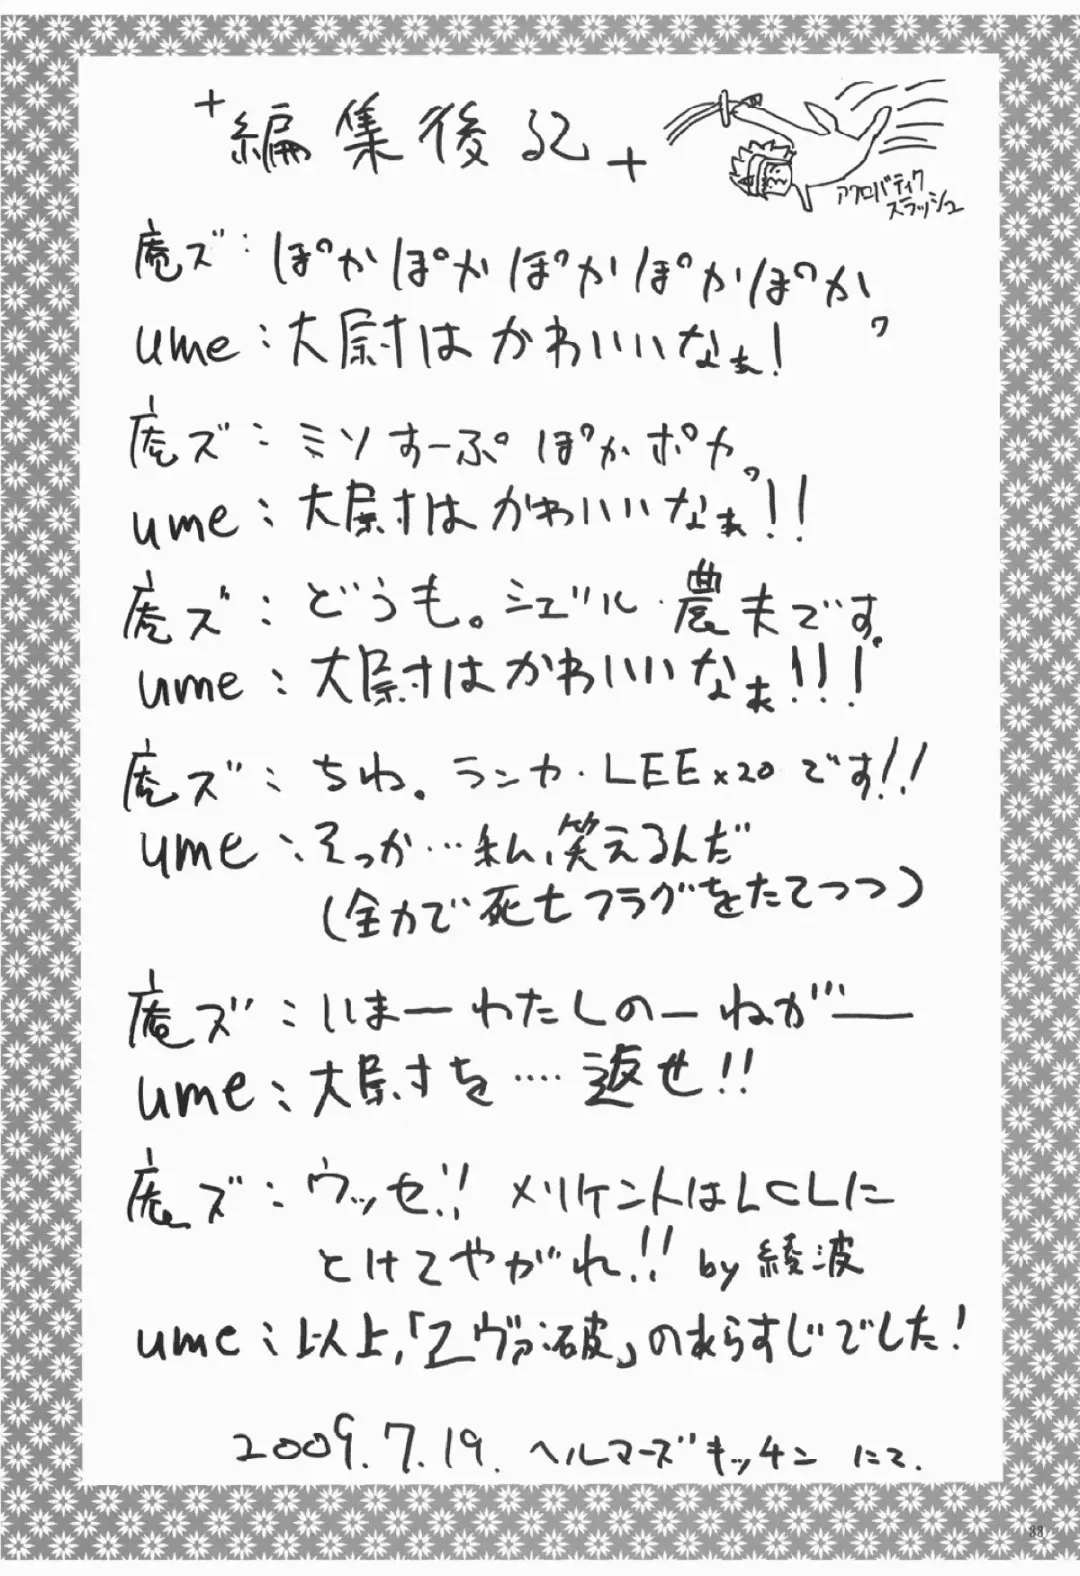 編集後記
アクロバティク
スラッシュ
庵ズ：ぽかぽかぽかぽかぽか。
ume：大尉はかわいいなぁ！
庵ズ：ミソすーぷぽかポカ。
ume：大尉はかわいいなぁ！！
庵ズ：どうも。シュゲル・農夫です。
ume：大尉はかわいいなぁ！！！
庵ズ：ちわ。ランカ・LEE×20です！！
ume：そっか…私、笑えるんだ
（全力で死亡フラグをたてつつ）
庵ズ：いまーわたしのーねがー
ume：大尉を‥‥返せ！！
庵ズ：ウッセ！！メリケントはLCLに
とけてやがれ！！by綾波
ume：以上、「ヱヴァ：破」のあらすじでした！
2009.7.19. ヘルマーズキッチン にて.
33